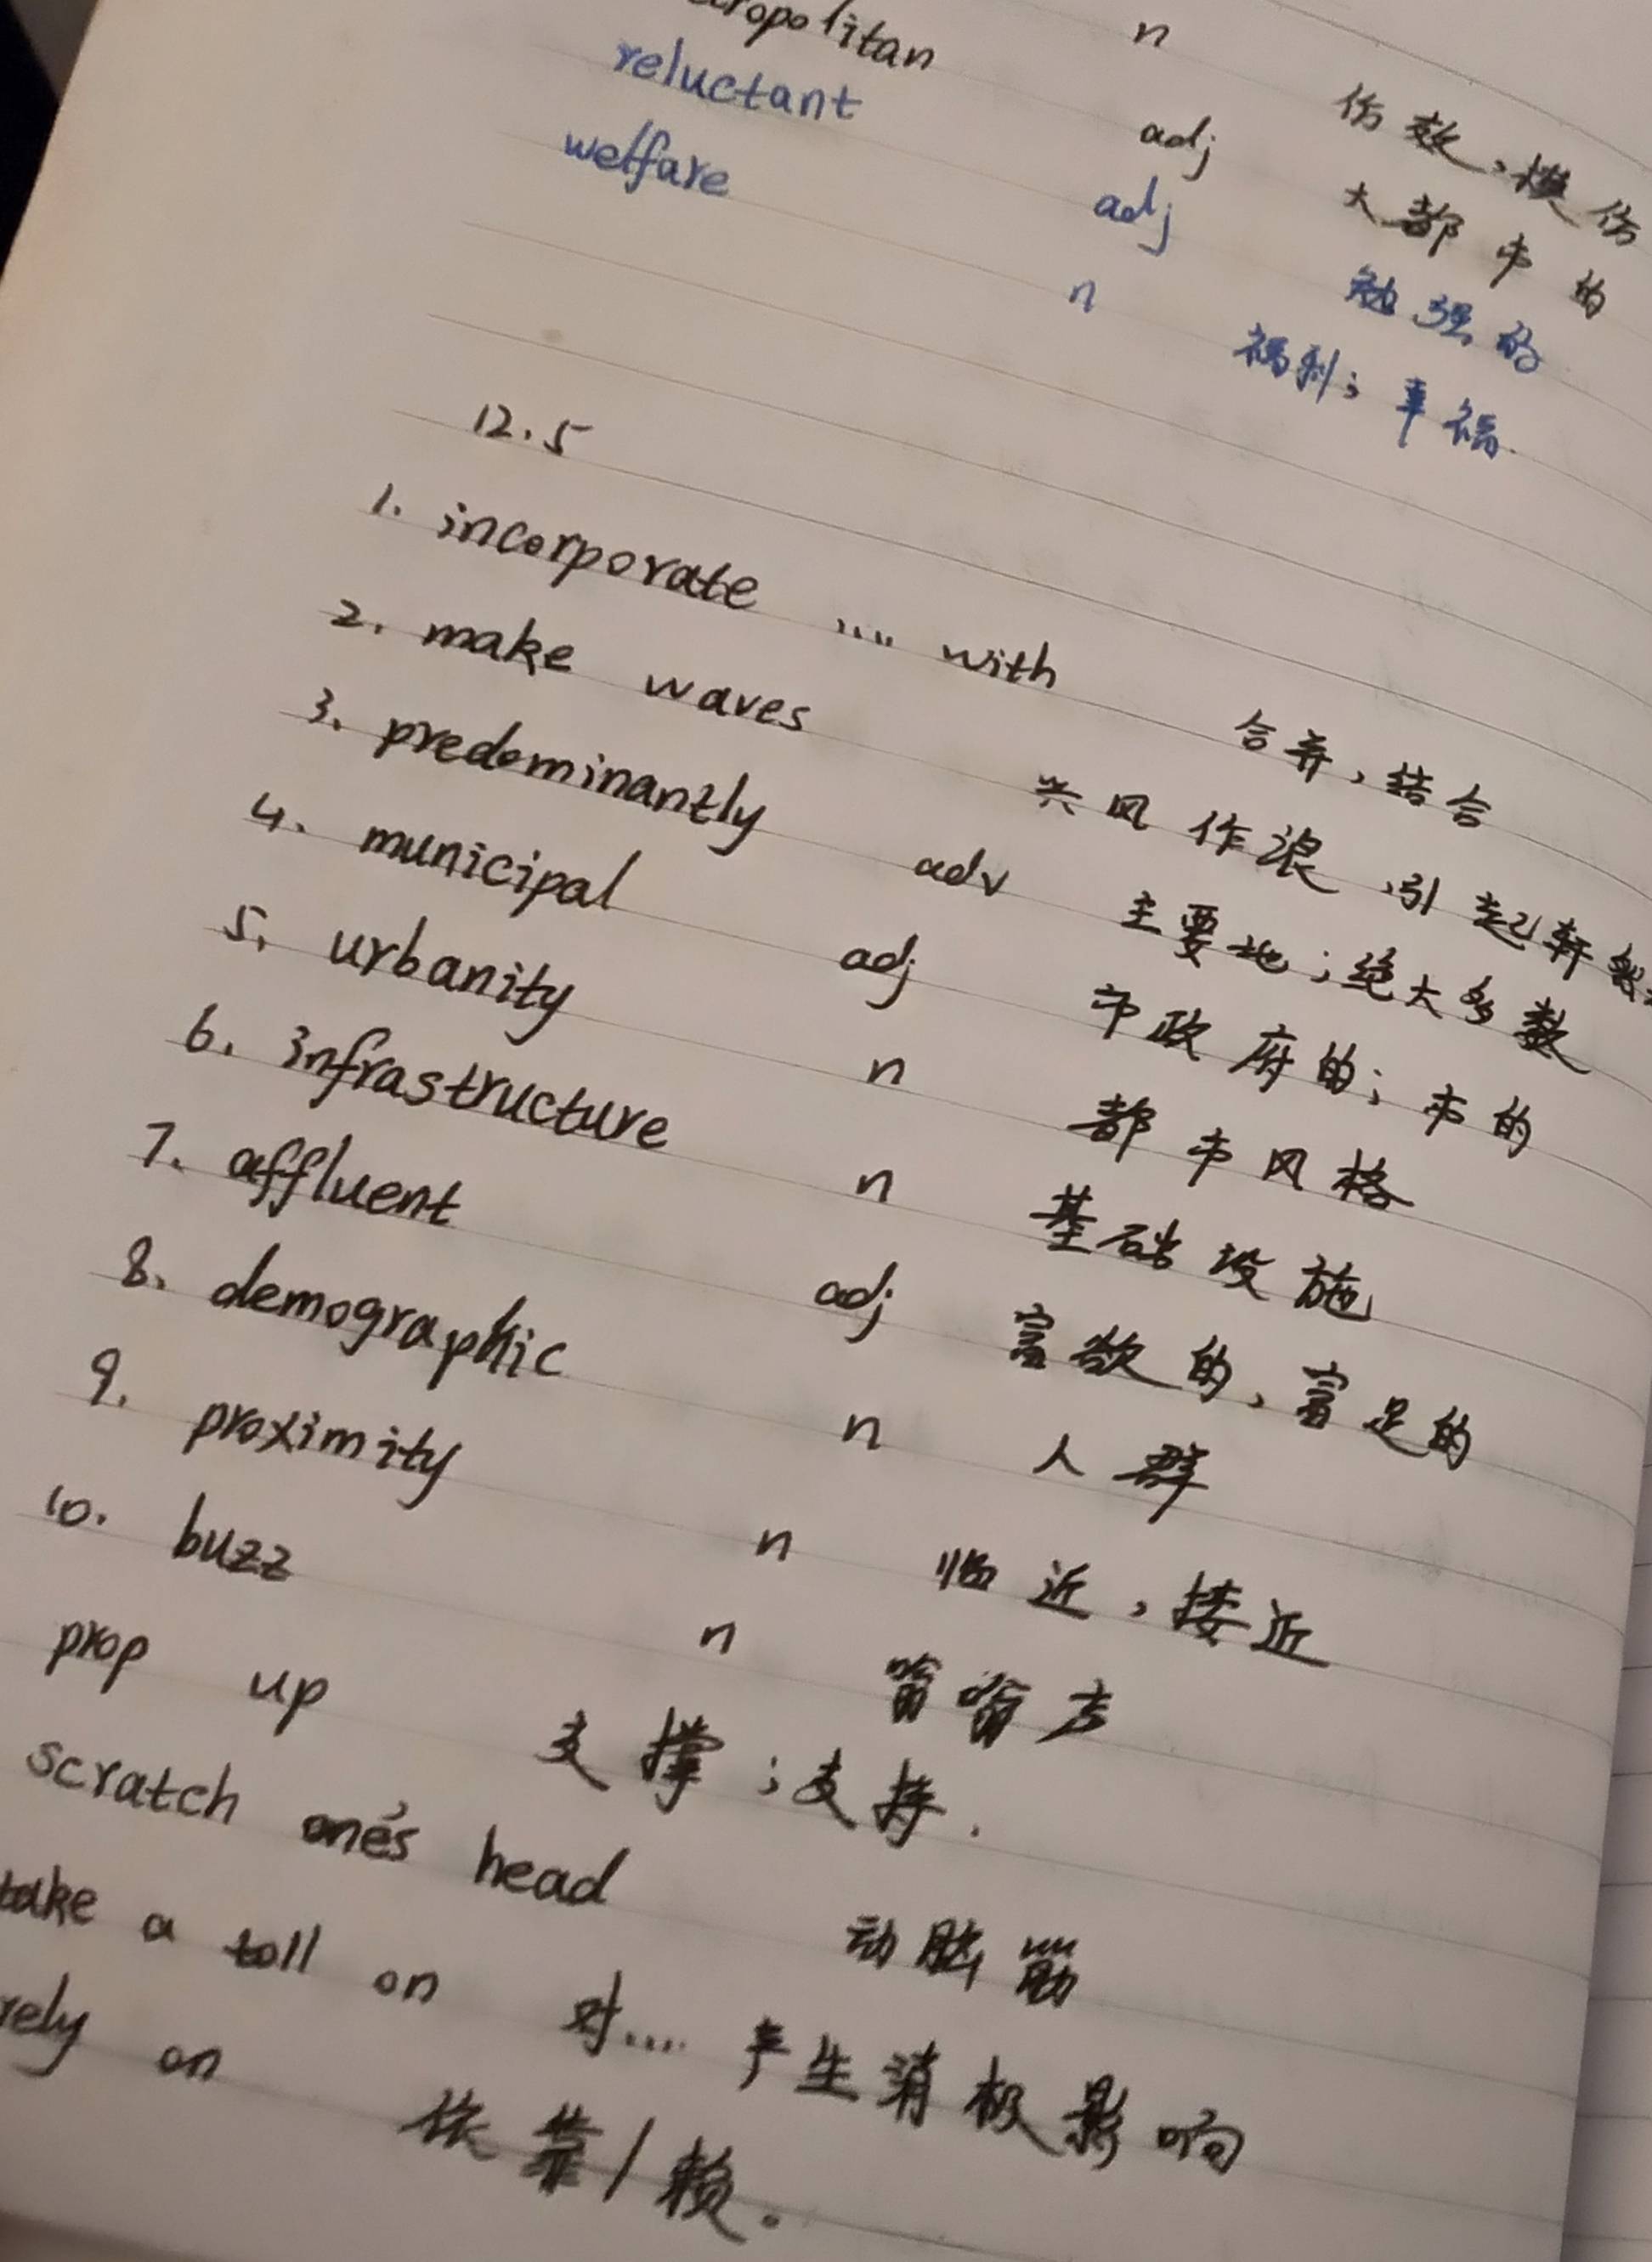 n 仿效，模仿
ropolitan adj 大都市的
reluctant adj 勉强的
welfare n 福利；幸福.
12.5
1. incorporate .... with 合并，结合
2. make waves 兴风作浪，引起轩
3. predominantly adv 主要地；绝大多数
4. municipal adj 市政府的；市的
5. urbanity n 都市风格
6. infrastructure n 基础设施
7. affluent adj 富欲的、富足的
8. demographic n 人群
9. proximity n 临近，接近
10. buzz n 嗡嗡声
prop up 支撑；支持.
scratch one's head 动脑筋
take a toll on 对.... 产生消极影响
rely on 依靠/赖。